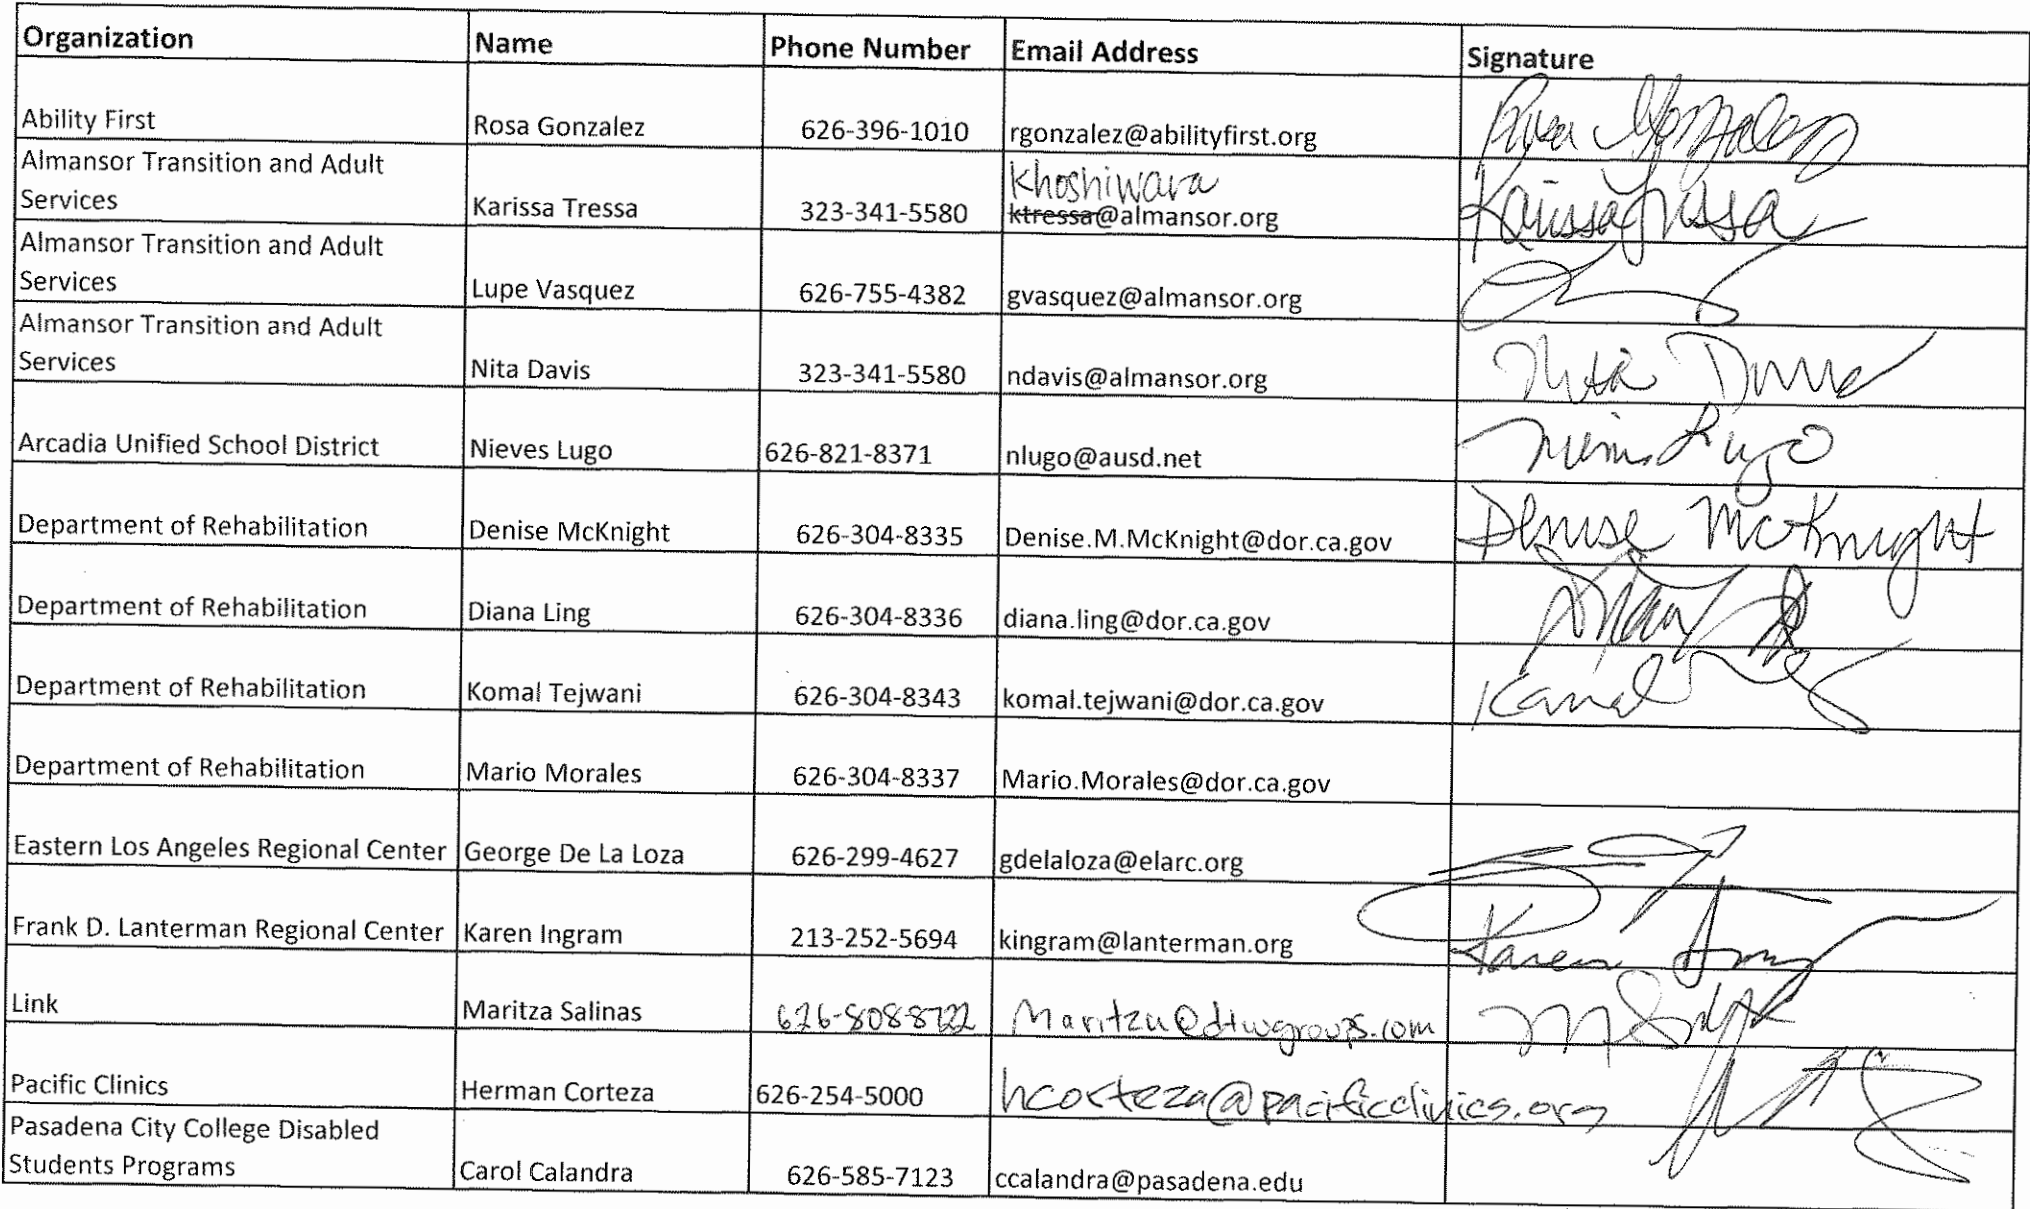 Organization Name Phone Number Email Address Signature
Ability First Rosa Gonzalez 626-396-1010 rgonzalez@abilityfirst.org Rosa Gonzalez
Almansor Transition and Adult
khoshiwara
Services Karissa Tressa 323-341-5580 ktressa@almansor.org Karissa Tressa
Almansor Transition and Adult
Services Lupe Vasquez 626-755-4382 gvasquez@almansor.org
Almansor Transition and Adult
Services Nita Davis 323-341-5580 ndavis@almansor.org Nita Davis
Arcadia Unified School District Nieves Lugo 626-821-8371 nlugo@ausd.net Lugo
Department of Rehabilitation Denise McKnight 626-304-8335 Denise.M.McKnight@dor.ca.gov Denise McKnight
Department of Rehabilitation Diana Ling 626-304-8336 diana.ling@dor.ca.gov
Department of Rehabilitation Komal Tejwani 626-304-8343 komal.tejwani@dor.ca.gov
Department of Rehabilitation Mario Morales 626-304-8337 Mario.Morales@dor.ca.gov
Eastern Los Angeles Regional Center George De La Loza 626-299-4627 gdelaloza@elarc.org
Frank D. Lanterman Regional Center Karen Ingram 213-252-5694 kingram@lanterman.org Karen
Link Maritza Salinas 626-8088722 Maritza@dtwgroups.com
Pacific Clinics Herman Corteza 626-254-5000 hcorteza@pacificclinics.org
Pasadena City College Disabled
Students Programs Carol Calandra 626-585-7123 ccalandra@pasadena.edu